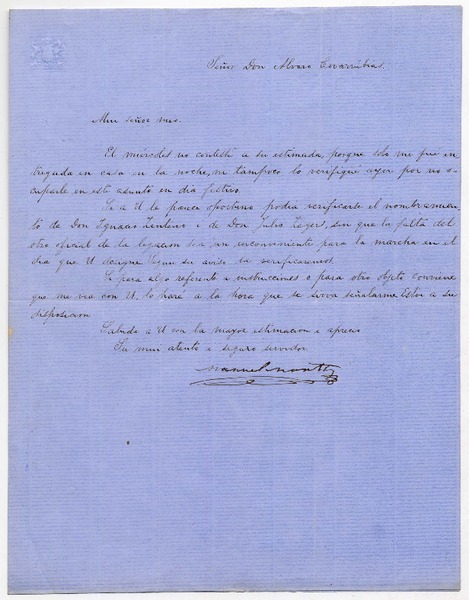 Señor Don Alvaro Covarrúbias.
Mui señor mio.
El miércoles no contesté a su estimada, porque solo me fué en
tregada en casa en la noche, ni tampoco lo verifiqué ayer por no o-
cuparle en este asunto en dia festivo.
Si a U le parece oportuno podria verificarse el nombramien
to de Don Ignacio Zenteno i de Don Julio Zegers, sin que la falta del
otro oficial de la legacion sea un inconveniente para la marcha en el
dia que U designe. Segun su aviso la verificaremos.
Si para algo referente a instrucciones o para otro objeto conviene
que me vea con U, lo haré a la hora que se sirva señalarme. Estoi a su
disposicion
Saluda a U con la mayor estimacion i aprecio
Su mui atento i seguro servidor
Manuel Montt